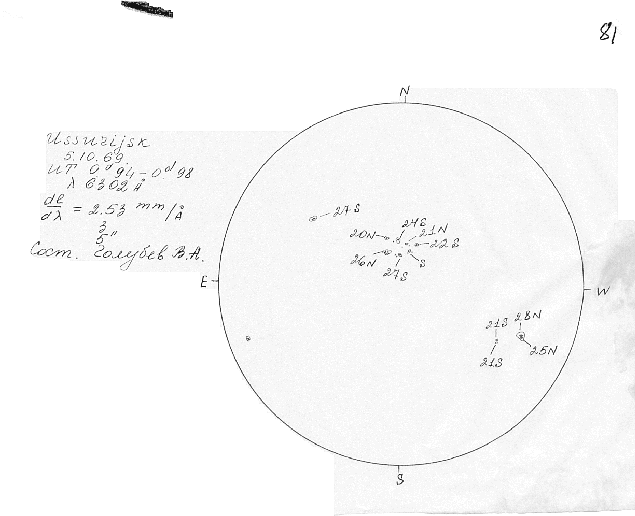 81
N
Ussurijsk
5.10.69.
UT 0ᵈ94-0ᵈ98
λ 6302 Å
dl/dλ = 2.53 mm/Å
3
5"
Сост. Голубев В.А.
27S
24S
20N 21N
22S
26N S
27S
E
W
21S 28N
25N
21S
S